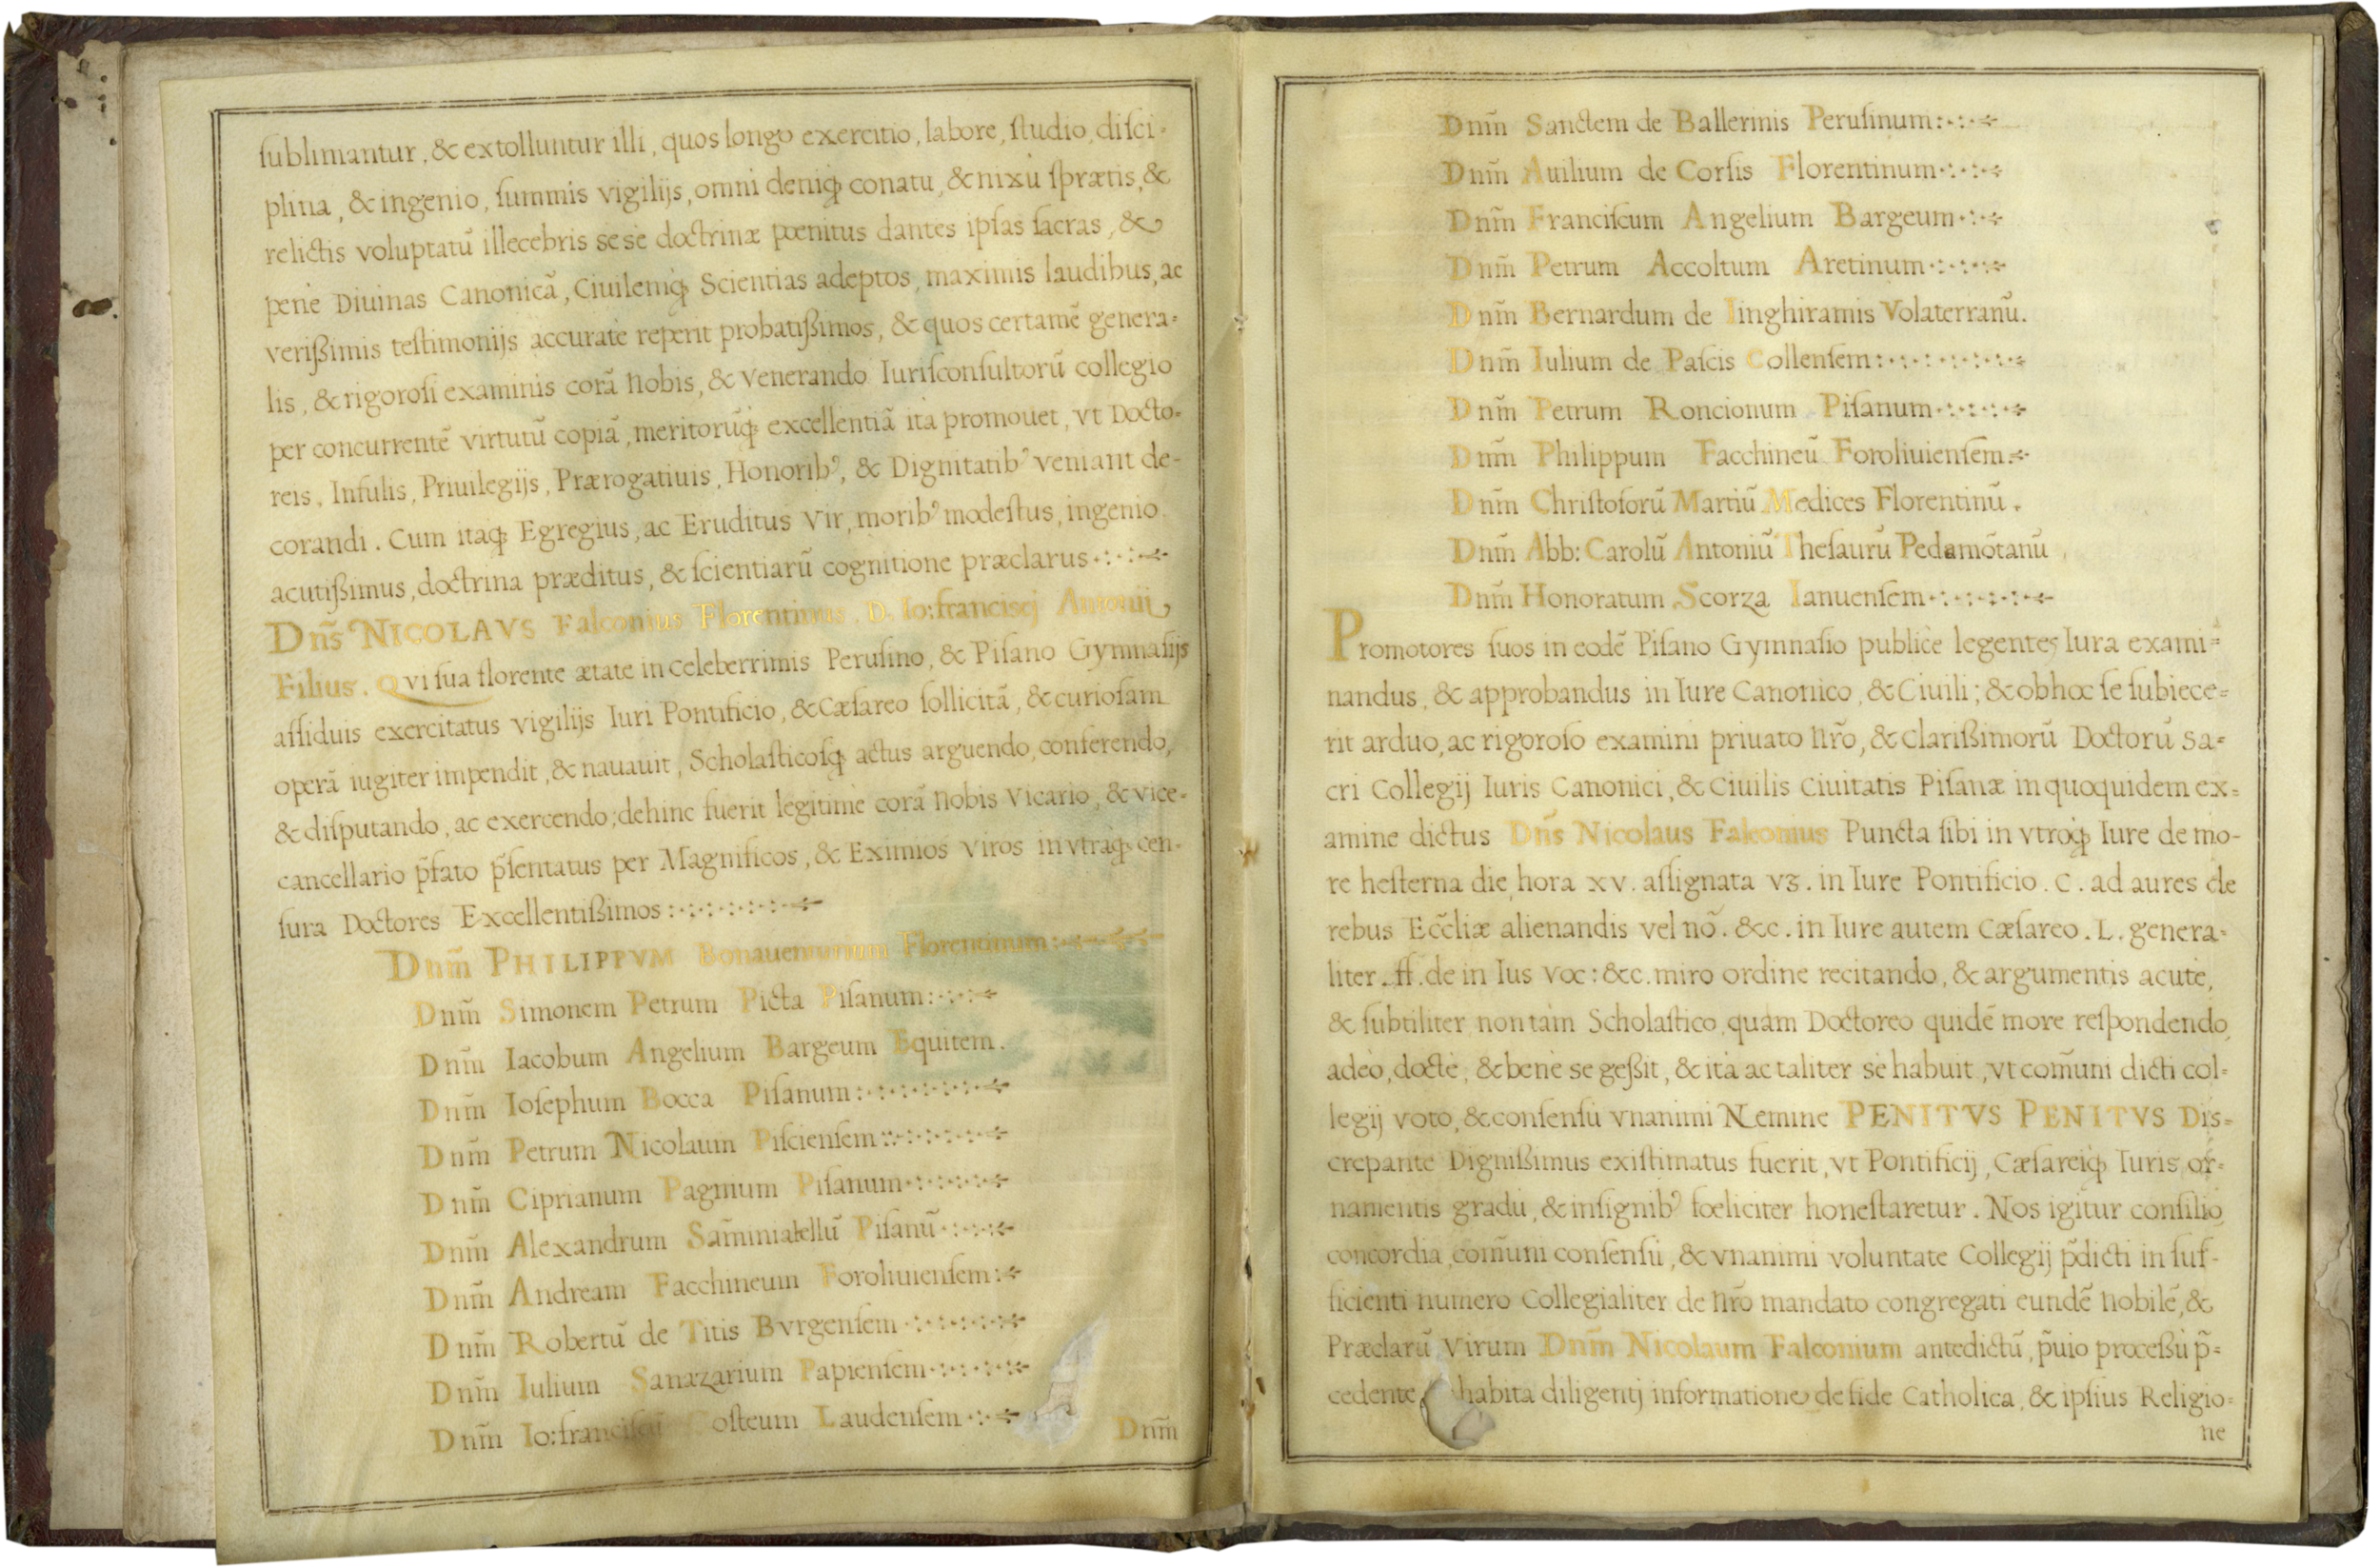 ſublimantur, & extolluntur illi, quos longo exercitio, labore, ſtudio, diſci-
plina, & ingenio, ſummis vigilijs, omni deniq; conatu, & nixù ſprætis, &
relictis voluptatũ illecebris sesè doctrinæ pœnitus dantes ipſas ſacras, &
penè Diuinas Canonicã, Ciuilemq; Scientias adeptos, maximis laudibus, ac
verißimis teſtimonijs accuratè reperit probatißimos, & quos certamẽ genera-
lis, & rigoroſi examinis corã Nobis, & venerando Iuriſconſultorũ collegio
per concurrentẽ virtutũ copiã, meritorũq; excellentiã ità promouet, vt Docto-
reis, Infulis, Priuilegijs, Prærogatiuis, Honoribꝰ, & Dignitatibꝰ veniant de-
corandi. Cum itaq; Egregius, ac Eruditus Vir, moribꝰ modeſtus, ingenio
acutißimus, doctrina præditus, & ſcientiarũ cognitione præclarus
Dñs NICOLAVS Falconius Florentinus. D. Io:franciscj Antonii
Filius. Qvi ſua florente ætate in celeberrimis Peruſino, & Piſano Gymnaſijs
aſſiduis exercitatus vigilijs Iuri Pontificio, & Cæſareo ſollicitã, & curioſam
operã iugiter impendit, & nauauit, Scholaſticoſq; actus arguendo, conferendo,
& diſputando, ac exercendo; dehinc fuerit legitimè corã Nobis Vicario, & vice-
cancellario p̃fato p̃ſentatus per Magnificos, & Eximios viros in vtraq; cen-
ſura Doctores Excellentißimos
Dnm̃ PHILIPPVM Bonauenturium Florentinum
Dnm̃ Simonem Petrum Picta Piſanum
Dnm̃ Iacobum Angelium Bargeum Equitem.
Dnm̃ Ioſephum Bocca Piſanum
Dnm̃ Petrum Nicolaum Piſcienſem
Dnm̃ Ciprianum Pagnium Piſanum
Dnm̃ Alexandrum Sam̃iniatellũ Piſanũ
Dnm̃ Andream Facchineum Foroliuienſem
Dnm̃ Robertũ de Titis Bvrgenſem
Dnm̃ Iulium Sanazarium Papienſem
Dnm̃ Io: Coſteum Laudenſem
Dnm̃
Dnm̃ Sanctem de Ballerinis Peruſinum
Dnm̃ Auilium de Corſis Florentinum
Dnm̃ Franciſcum Angelium Bargeum
Dnm̃ Petrum Accoltum Aretinum
Dnm̃ Bernardum de Iinghiramis Volaterranũ.
Dnm̃ Iulium de Paſcis Collenſem
Dnm̃ Petrum Roncionum Piſanum
Dnm̃ Philippum Facchineũ Foroliuienſem
Dnm̃ Chriſtoforũ Martiũ Medices Florentinũ.
Dnm̃ Abb: Carolũ Antoniũ Theſaurũ Pedemõtanũ
Dnm̃ Honoratum Scorza Ianuenſem
Promotores ſuos in eodẽ Piſano Gymnaſio publicè legentes Iura exami-
nandus, & approbandus in Iure Canonico, & Ciuili; & ob hoc ſe ſubiece-
rit arduo, ac rigoroſo examini priuato Nr̃o, & Clarißimorũ Doctorũ Sa-
cri Collegij Iuris Canonici, & Ciuilis Ciuitatis Piſanæ in quoquidem ex-
amine dictus Dñs Nicolaus Falconius Puncta ſibi in vtroq; Iure de mo-
re heſterna die hora xv. aſſignata vz. in Iure Pontificio. C. ad aures de
rebus Ecc̃liæ alienandis vel nõ. &c. in Iure autem Cæſareo. L. genera-
liter. ff. de in Ius voc: &c. miro ordine recitando, & argumentis acutè,
& ſubtiliter non tàm Scholaſtico, quàm Doctoreo quidẽ more reſpondendo
adeò, doctè, & benè se geßit, & ità ac taliter sè habuit, vt com̃uni dicti col-
legij voto, & conſenſù vnanimi Nemine PENITVS PENITVS Dis-
crepante Dignißimus exiſtimatus fuerit, vt Pontificij, Cæſareiq; Iuris or-
namentis gradu, & inſignibꝰ fœliciter honeſtaretur. Nos igitur conſilio
concordia, com̃uni conſenſù, & vnanimi voluntate Collegij p̃dicti in ſuf-
ficienti numero Collegialiter de Nr̃o mandato congregati eundẽ Nobilẽ, &
Præclarũ Virum Dnm̃ Nicolaum Falconium antedictũ, p̃uio proceßù p̃-
cedente, habita diligentj informatione de fide Catholica, & ipſius Religio-
ne